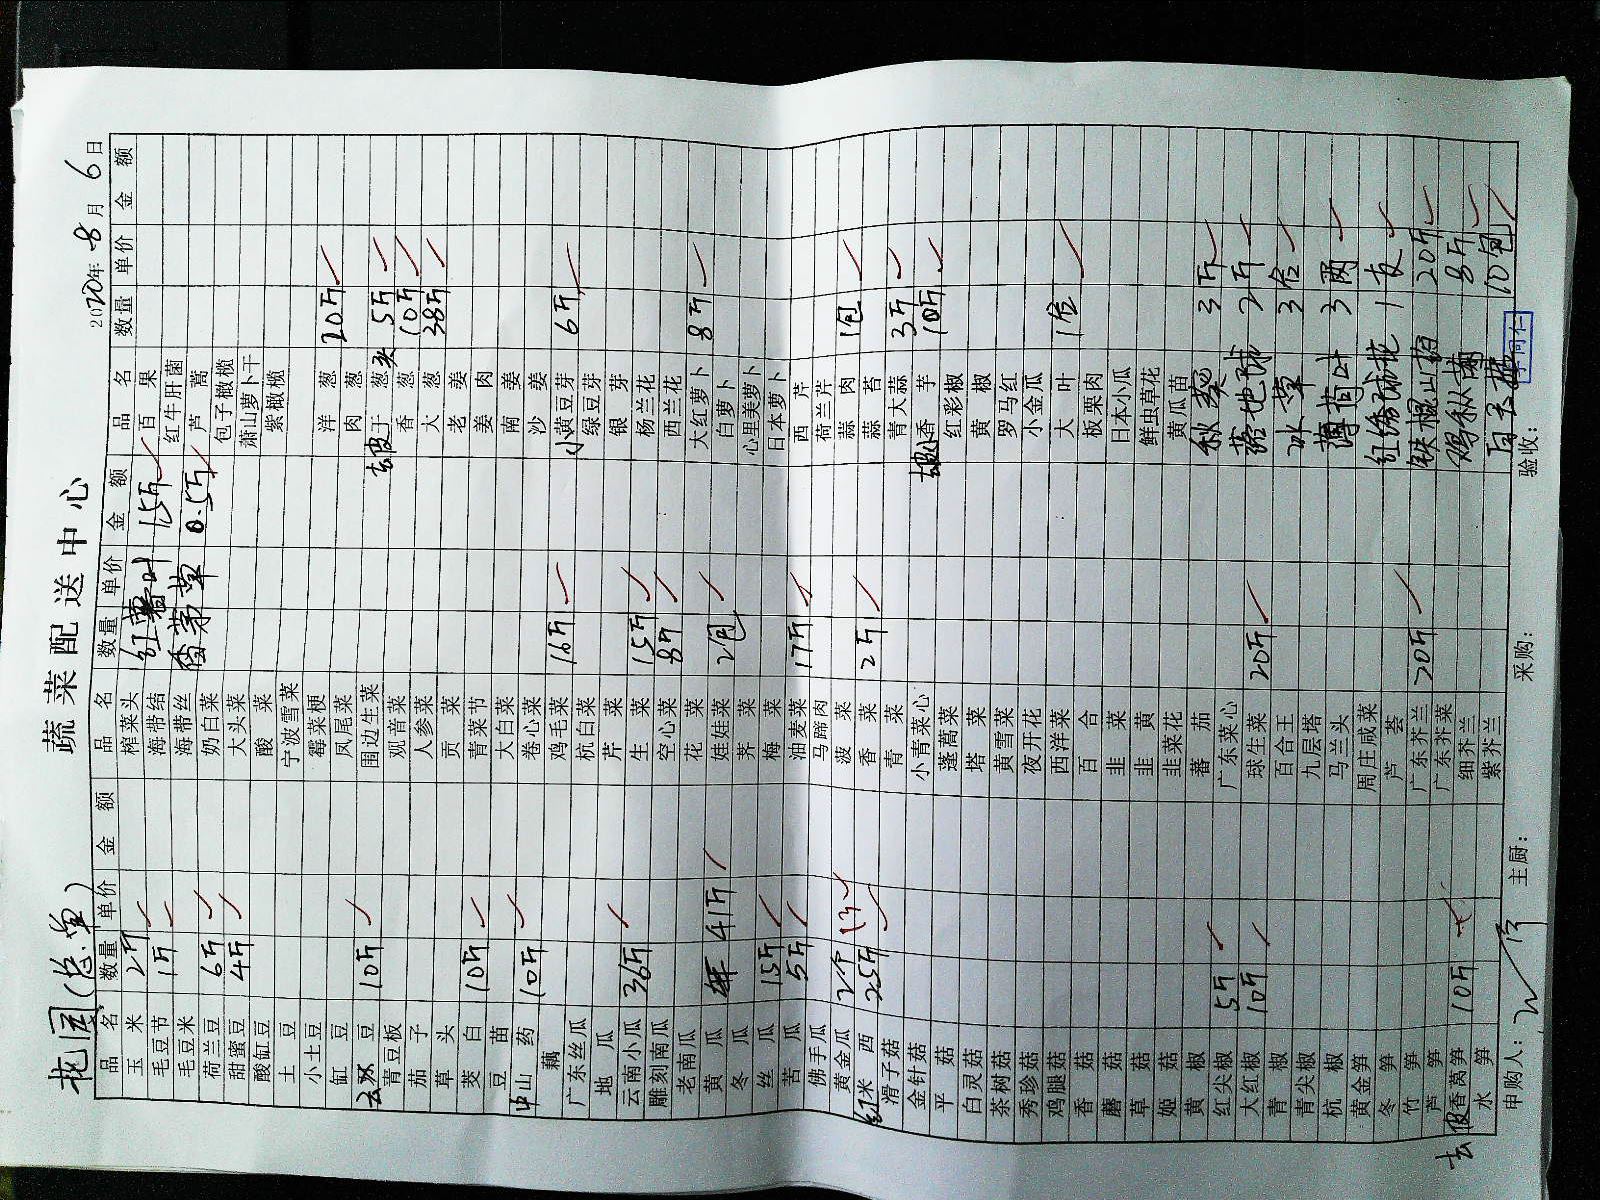 蔬菜配送中心
花园(总单) 2020年8月6日
品名 数量 单价 金额 品名 数量 单价 金额 品名 数量 单价 金额
玉米 2斤 榨菜头 红薯叶 15斤 百果
毛豆节 1斤 海带结 红牛肝菌
毛豆米 海带丝 香茅草 0.5斤 芦蒿
荷兰豆 6斤 奶白菜 包子橄榄
甜蜜豆 4斤 大头菜 萧山萝卜干
酸缸豆 酸菜 紫橄榄
土豆 宁波雪菜
小土豆 霉菜梗 洋葱 20斤
缸豆 凤尾菜 肉葱
豆 10斤 围边生菜 去皮干葱头 5斤
青豆板 观音菜 香葱 10斤
茄子 人参菜 大葱 38斤
草头 贡菜 老姜
茭白 10斤 青菜节 姜肉
豆苗 大白菜 南姜
山药 10斤 卷心菜 沙姜
藕 鸡毛菜 16斤 小黄豆芽 6斤
广东丝瓜 杭白菜 绿豆芽
地瓜 芹菜 银芽
云南小瓜 36斤 生菜 15斤 杨兰花
雕刻南瓜 空心菜 8斤 西兰花
老南瓜 花菜 大红萝卜 8斤
黄瓜 41斤 娃娃菜 2包 白萝卜
冬瓜 荠菜 心里美萝卜
丝瓜 15斤 梅菜 日本萝卜
苦瓜 5斤 油麦菜 17斤 西芹
佛手瓜 马蹄肉 荷兰芹
黄金瓜 2个 菠菜 蒜肉 1包
红米西 25斤 香菜 2斤 蒜苔
滑子菇 青菜 青大蒜 3斤
金针菇 小青菜心 去皮小香芋 10斤
平菇 蓬蒿菜 红彩椒
白灵菇 塔菜 黄椒
茶树菇 黄雪菜 罗马红
秀珍菇 夜开花 小金瓜
鸡腿菇 西洋菜 大叶
香菇 百合 板栗肉
蘑菇 韭菜 日本小瓜
草菇 韭黄 鲜虫草花
姬菇 韭菜花 黄瓜苗
黄椒 蕃茄 秋葵 3斤
红尖椒 5斤 广东菜心
大红椒 10斤 球生菜 20斤 落地球 2斤
青椒 百合王 冰草 3合
青尖椒 九层塔
杭椒 马兰头 薄荷叶 3两
黄金笋 周庄咸菜
冬笋 芦荟 红绣球花 1支
竹笋 广东芥兰 20斤 铁棍山药 20斤
芦笋 广东芥菜
去皮香莴笋 10斤 细芥兰 鸡枞菌 8斤
水笋 紫芥兰 10包
申购人： 主厨： 采购： 验收：